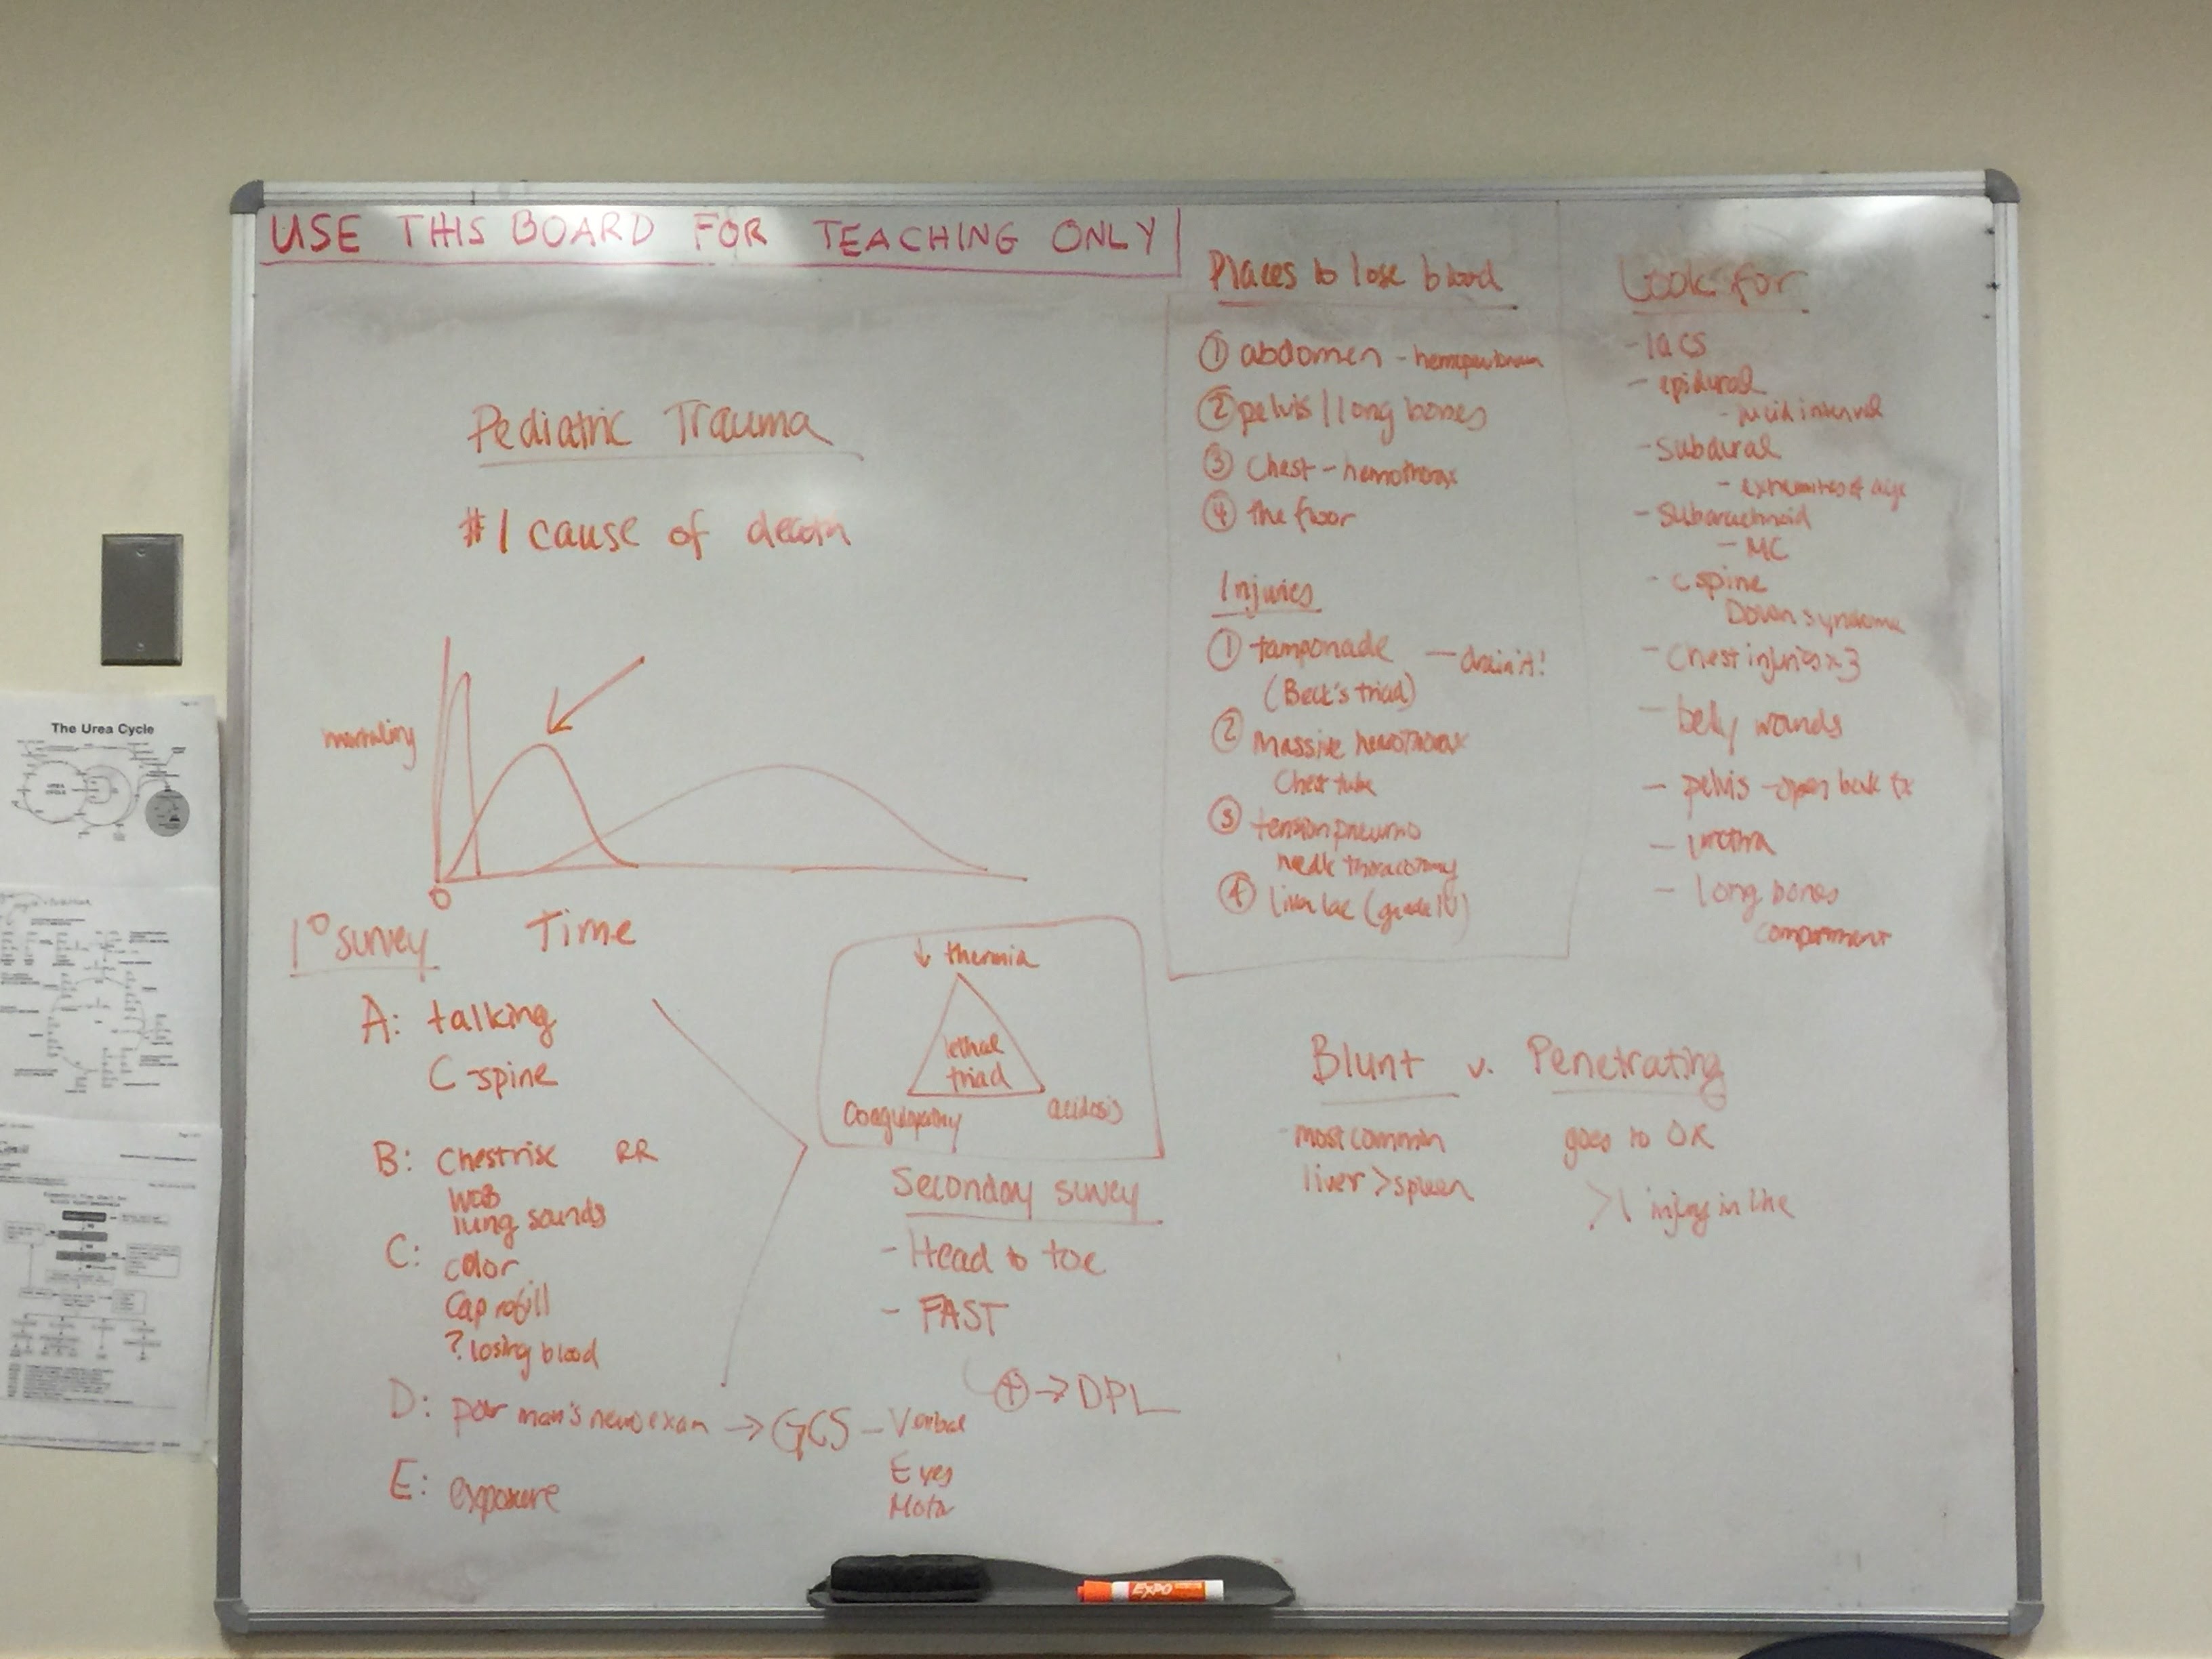 USE THIS BOARD FOR TEACHING ONLY
Pediatric Trauma
#1 cause of death
mortality
0
Time
1° survey
A: talking
C-spine
B: Chestrise RR
WOB
lung sounds
C: color
Cap refill
? losing blood
D: poor man's neuro exam → GCS - Verbal
Eyes
Motor
E: exposure
↓ thermia
lethal
triad
Coagulopathy
acidosis
Secondary survey
- Head to toe
- FAST
+ → DPL
Places to lose blood
① abdomen - hemoperitoneum
② pelvis / long bones
③ Chest - hemothorax
④ the floor
Injuries
① tamponade — drain it!
(Beck's triad)
② Massive hemothorax
Chest tube
③ tension pneumo
needle thoracotomy
④ liver lac (grade IV)
Look for
- lacs
- epidural
- lucid interval
- Subdural
- extremites of age
- Subarachnoid
- MC
- C spine
Down syndrome
- Chest injuries x 3
- belly wounds
- pelvis - open book fx
- urethra
- long bones
compartment
Blunt v. Penetrating
most common
liver > spleen
goes to OR
>1 injury in line
The Urea Cycle
EXPO